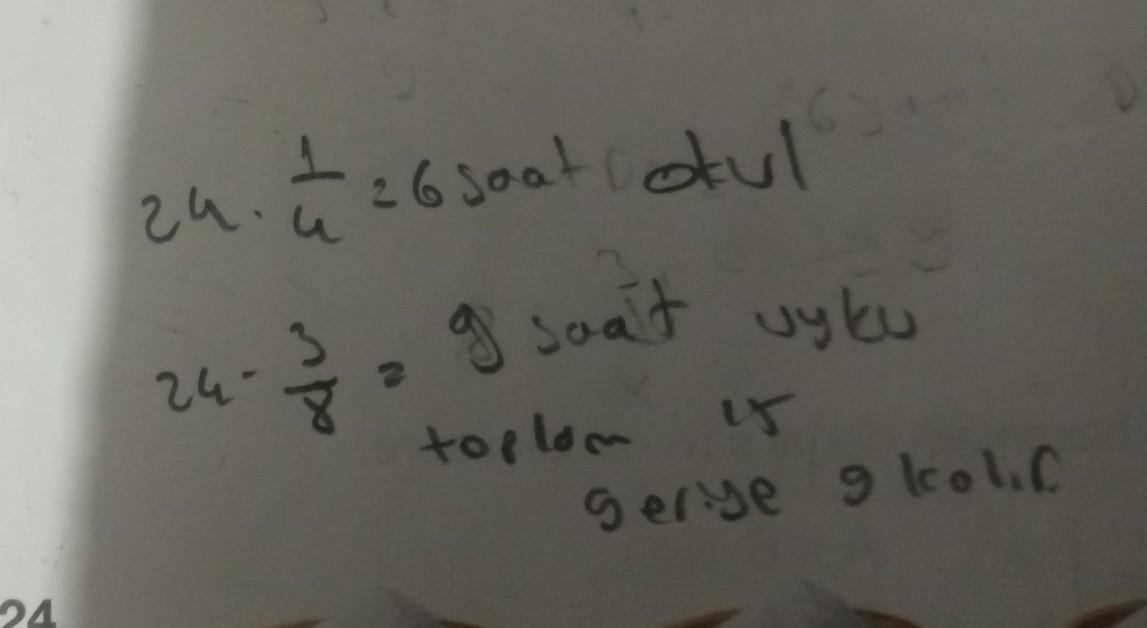 24 · 1/4 = 6 saat okul
24 · 3/8 = 9 saat uyku
toplam 15
geriye 9 kalır
24